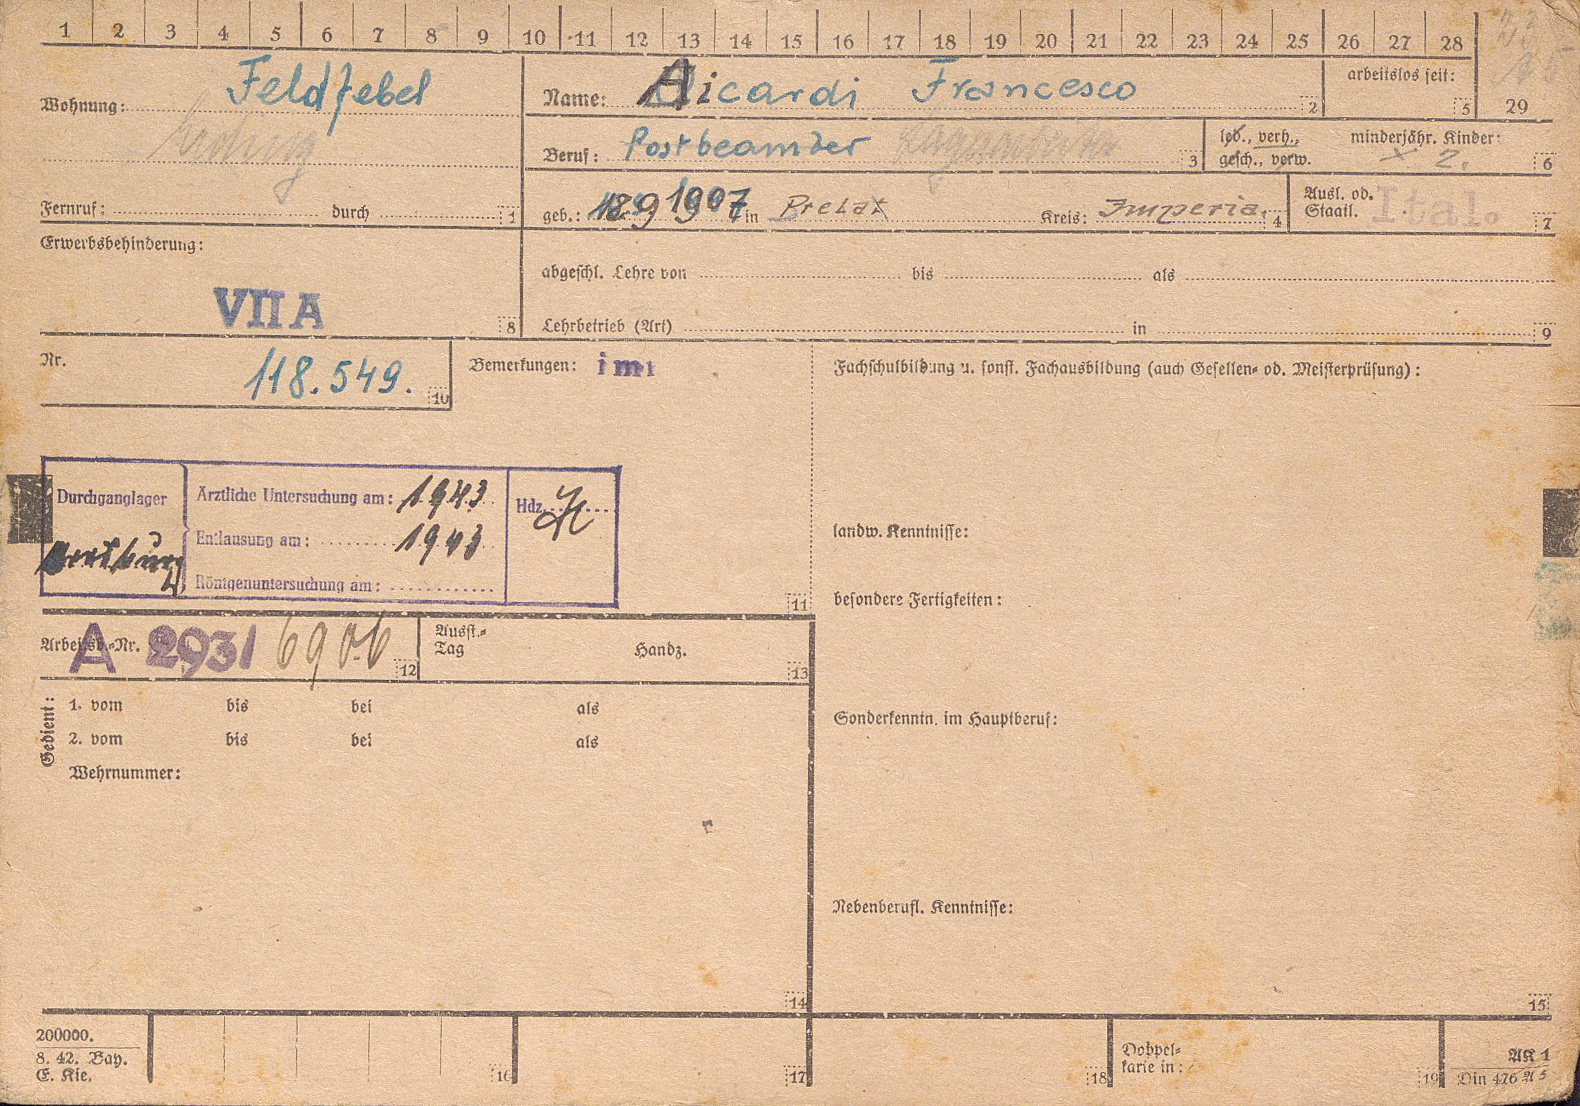 1 2 3 4 5 6 7 8 9 10 11 12 13 14 15 16 17 18 19 20 21 22 23 24 25 26 27 28
Wohnung: Feldfebel
Name: Aicardi Francesco 2
arbeitslos seit: 5 29
Beruf: Postbeamder 3
led., verh., gesch., verw.
minderjähr. Kinder: 2. 6
Fernruf: durch 1
geb.: 18.9 1907 in Prelà Kreis: Imperia. 4
Ausl. od. Staatl. Ital. 7
Erwerbsbehinderung:
VII A 8
abgeschl. Lehre von bis als
Lehrbetrieb (Art) in 9
Nr. 118.549. 10
Bemerkungen: imi
Fachschulbildung u. sonst. Fachausbildung (auch Gesellen- od. Meisterprüfung):
Durchganglager
Ärztliche Untersuchung am: 1943
Entlausung am: 1943
Röntgenuntersuchung am:
Hdz.
landw. Kenntnisse:
besondere Fertigkeiten:
11
Arbeitsb.-Nr. A 293/6906 12
Ausst.-Tag Handz. 13
Gedient:
1. vom bis bei als
2. vom bis bei als
Wehrnummer:
Sonderkenntn. im Hauptberuf:
Nebenberufl. Kenntnisse:
14 15
200000.
8. 42. Bay.
E. Kie.
16 17 18
Doppel-
karte in: 19
AK 1
Din 476 A 5